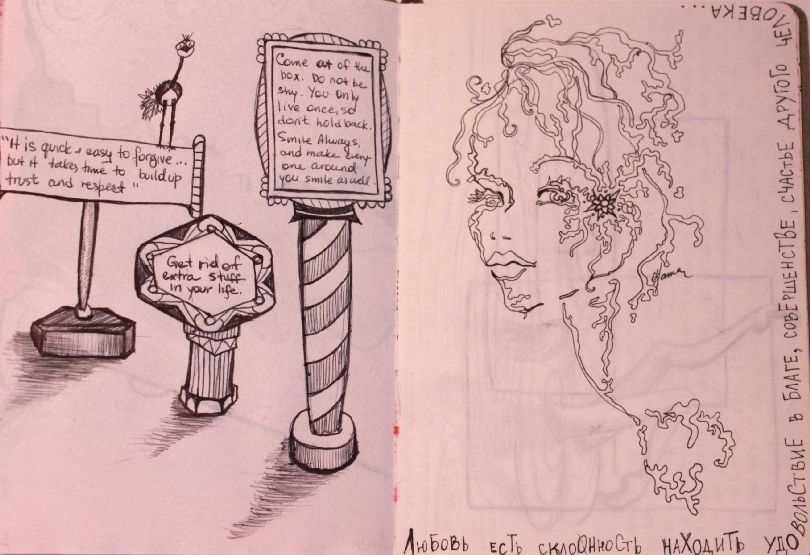 "It is quick & easy to forgive...
but it takes time to build up
trust and respect"
Get rid of
extra stuff
in your life..
Come out of the
box. Do not be
shy. You only
live once, so
don't hold back.
Smile Always,
and make every
one around
you smile as well
Любовь есть склонность находить удовольствие в благе, совершенстве, счастье другого человека...